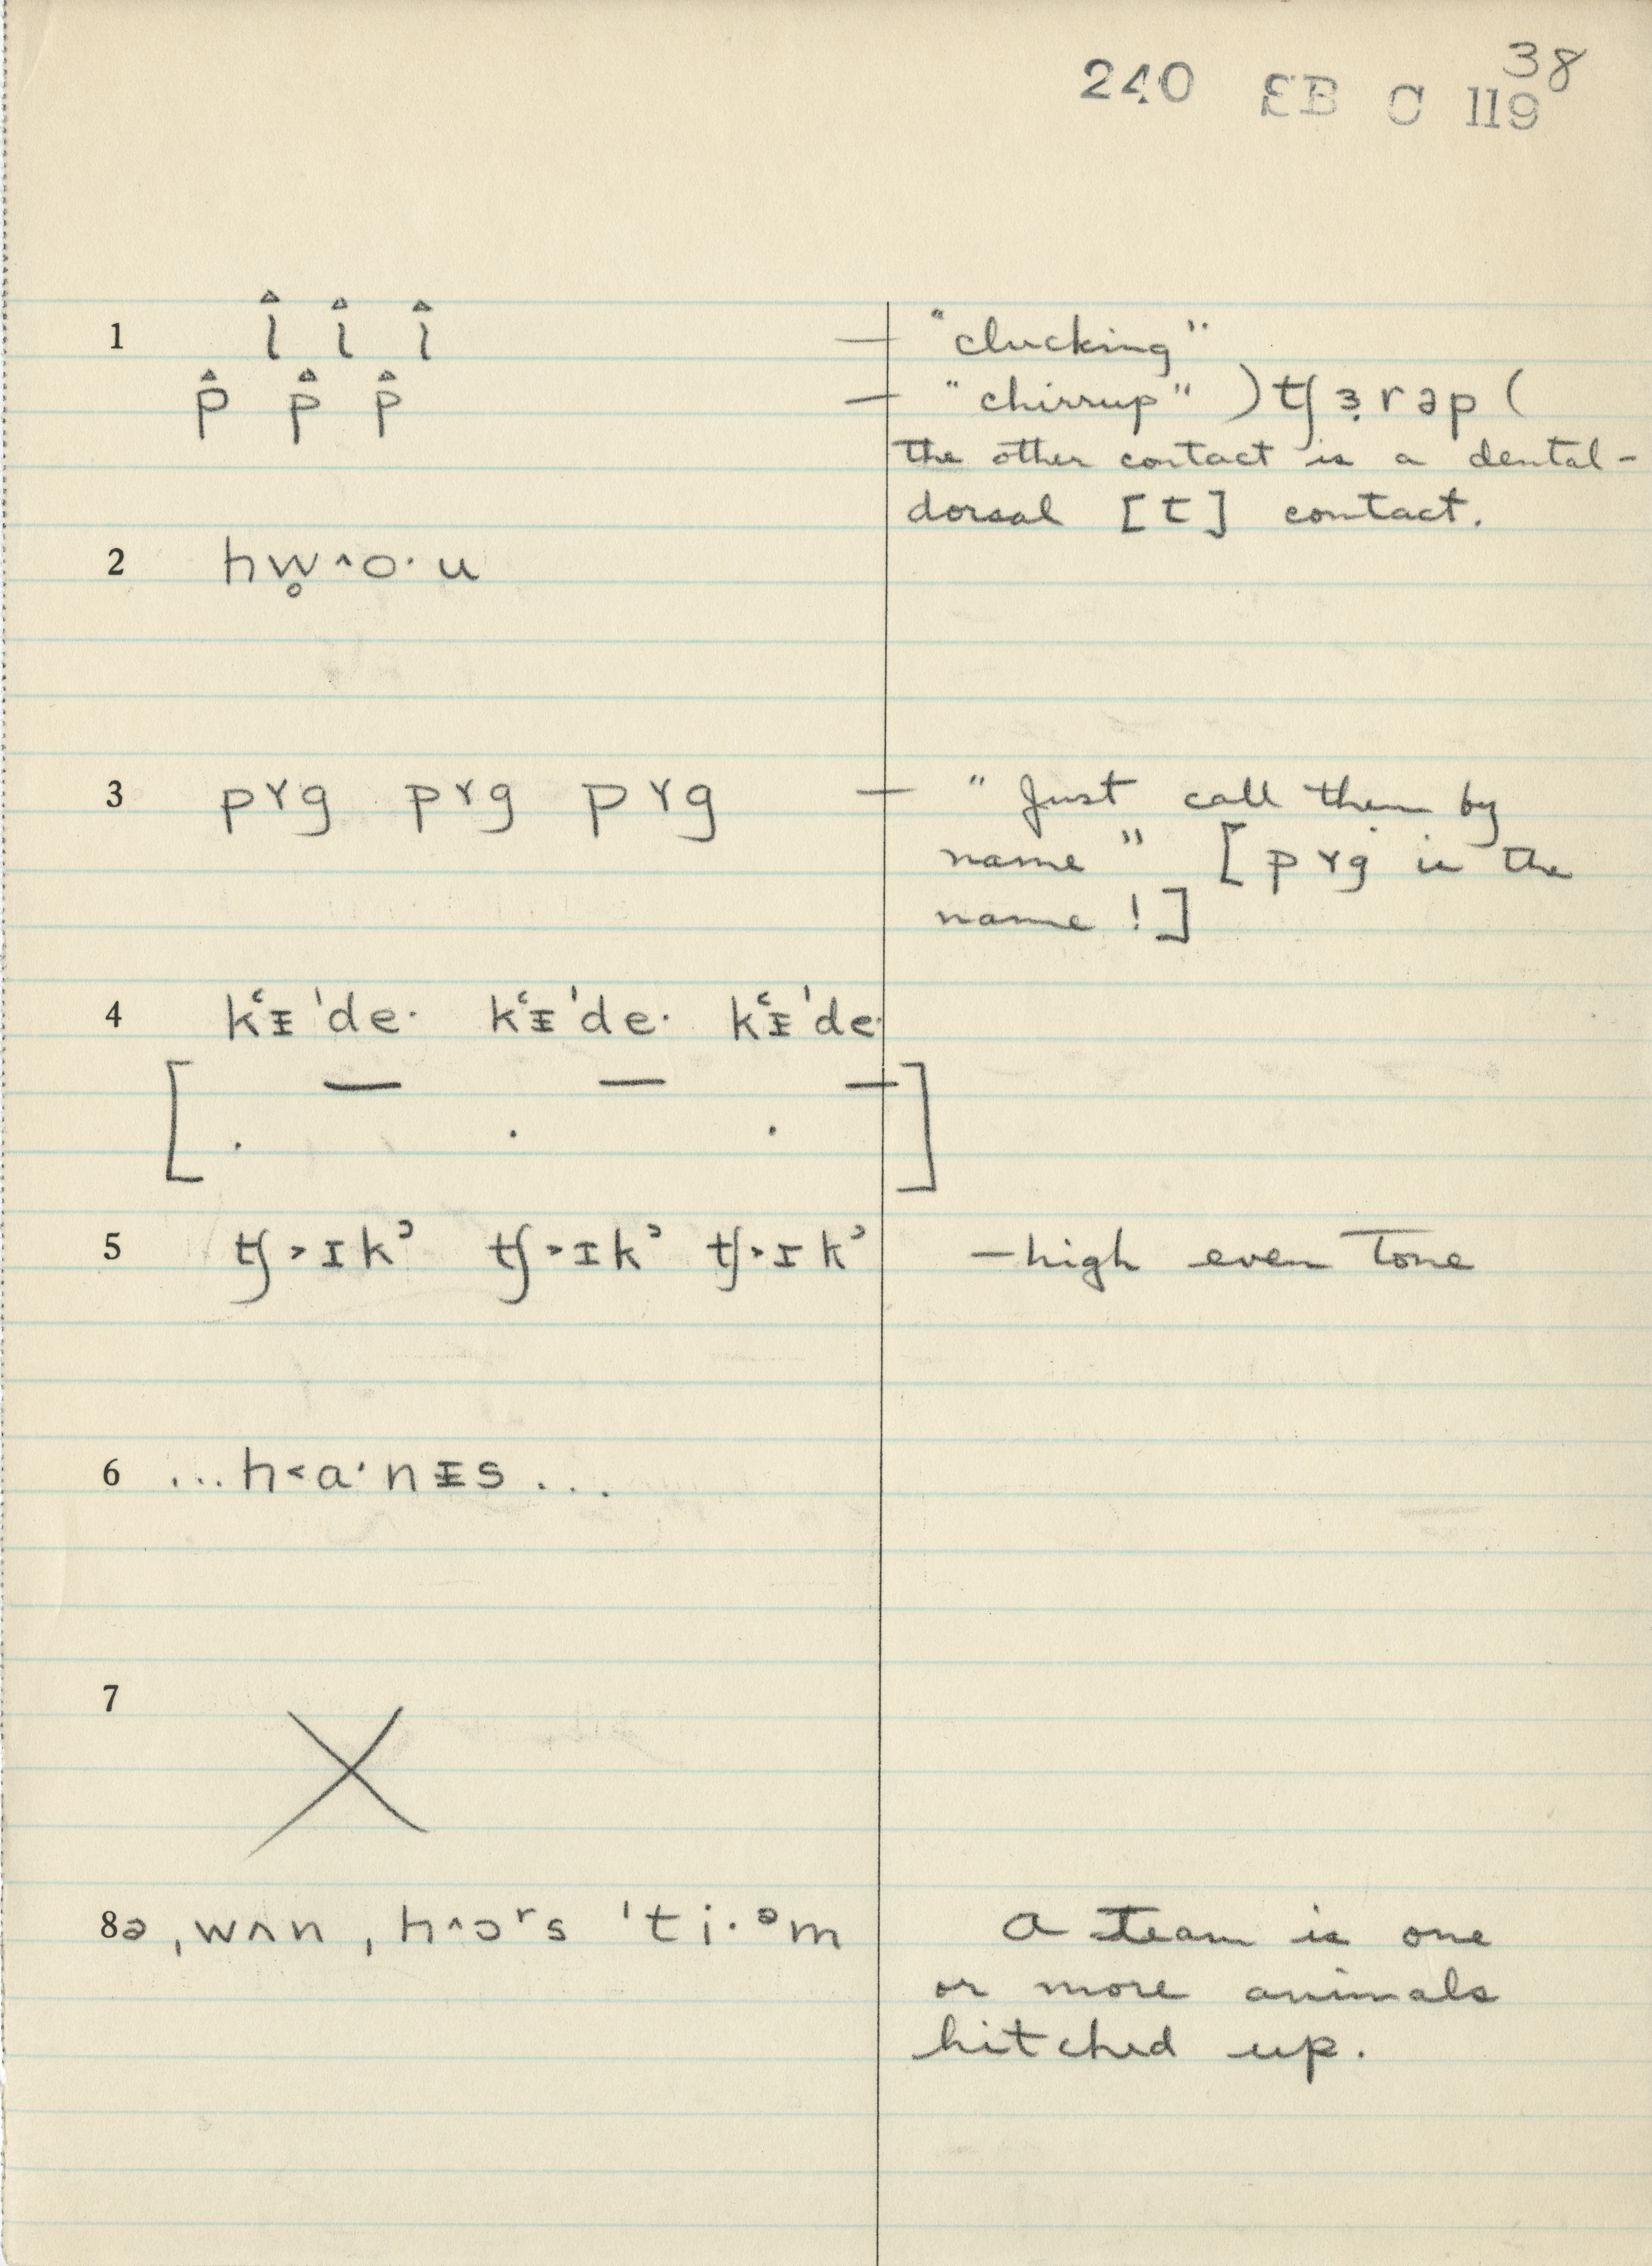 38
240 EB C 119
1 l̂ l̂ l̂ — "clucking"
p̂ p̂ p̂ — "chirrup" ) tʃ ɜ̣ r ə p (
the other contact is a dental-
dorsal [t] contact.
2 hw̥^o·u
3 pɤg pɤg pɤg — "Just call them by
name" [pɤg is the
name!]
4 kʻᵻ'de· kʻᵻ'de· kʻᵻ'de·
5 tʃ˃ɪkʾ tʃ˃ɪkʾ tʃ˃ɪkʾ — high even tone
6 ...h˂a·nᵻs...
7
8 ə ˌwʌn ˌh^ɔʳs 'ti·ᵊm A team is one
or more animals
hitched up.